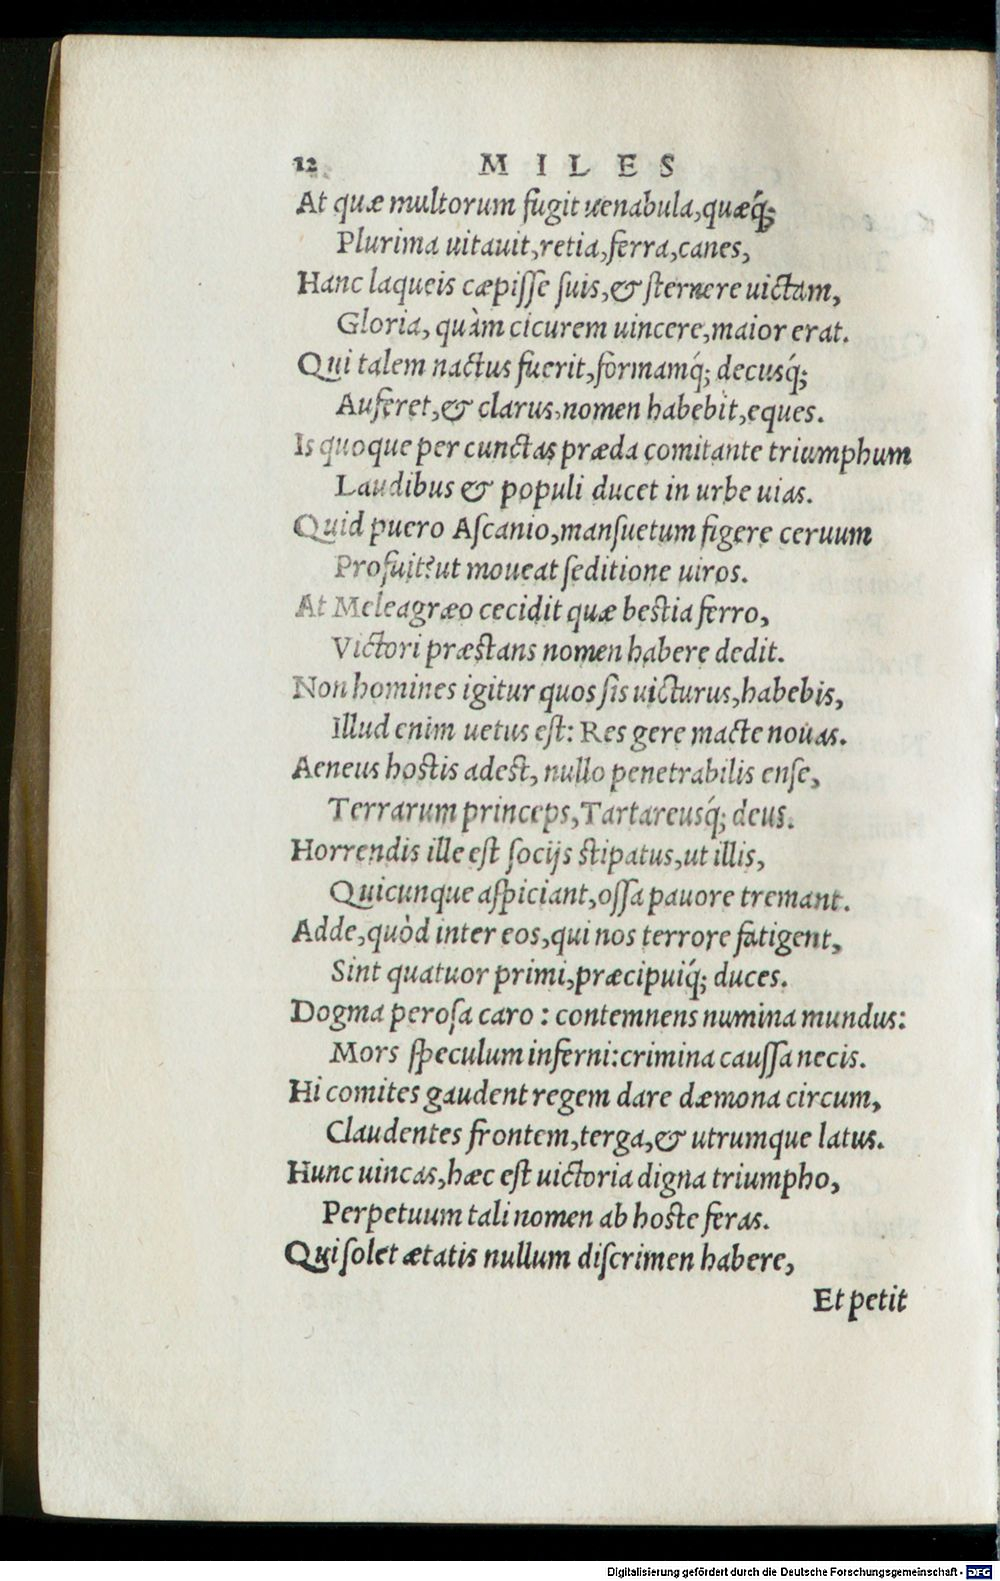 12 MILES
At quæ multorum fugit uenabula, quæq́;
Plurima uitauit, retia, ferra, canes,
Hanc laqueis cæpiſſe ſuis, & ſternere uictam,
Gloria, quàm cicurem uincere, maior erat.
Qui talem nactus fuerit, formamq́; decusq́;
Auferet, & clarus, nomen habebit, eques.
Is quoque per cunctas præda comitante triumphum
Laudibus & populi ducet in urbe uias.
Quid puero Aſcanio, manſuetum figere ceruum
Profuit? ut moueat ſeditione uiros.
At Meleagræo cecidit quæ beſtia ferro,
Victori præſtans nomen habere dedit.
Non homines igitur quos ſis uicturus, habebis,
Illud enim uetus eſt: Res gere macte nouas.
Aeneus hoſtis adeſt, nullo penetrabilis enſe,
Terrarum princeps, Tartareusq́; deus.
Horrendis ille eſt ſocijs ſtipatus, ut illis,
Quicunque aſpiciant, oſſa pauore tremant.
Adde, quòd inter eos, qui nos terrore fatigent,
Sint quatuor primi, præcipuiq́; duces.
Dogma peroſa caro : contemnens numina mundus:
Mors ſpeculum inferni: crimina cauſſa necis.
Hi comites gaudent regem dare dæmona circum,
Claudentes frontem, terga, & utrumque latus.
Hunc uincas, hæc eſt uictoria digna triumpho,
Perpetuum tali nomen ab hoſte feras.
Qui ſolet ætatis nullum diſcrimen habere,
Et petit
Digitalisierung gefördert durch die Deutsche Forschungsgemeinschaft - DFG